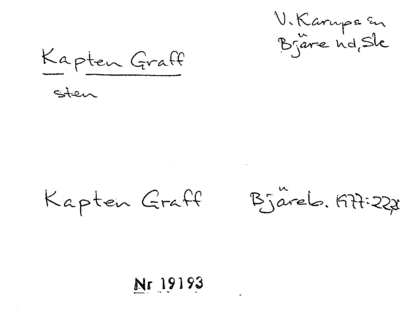 Kapten Graff
sten
V. Karups sn
Bjäre hd, Sk
Kapten Graff
Bjäreb. 1977:22,
Nr 19193